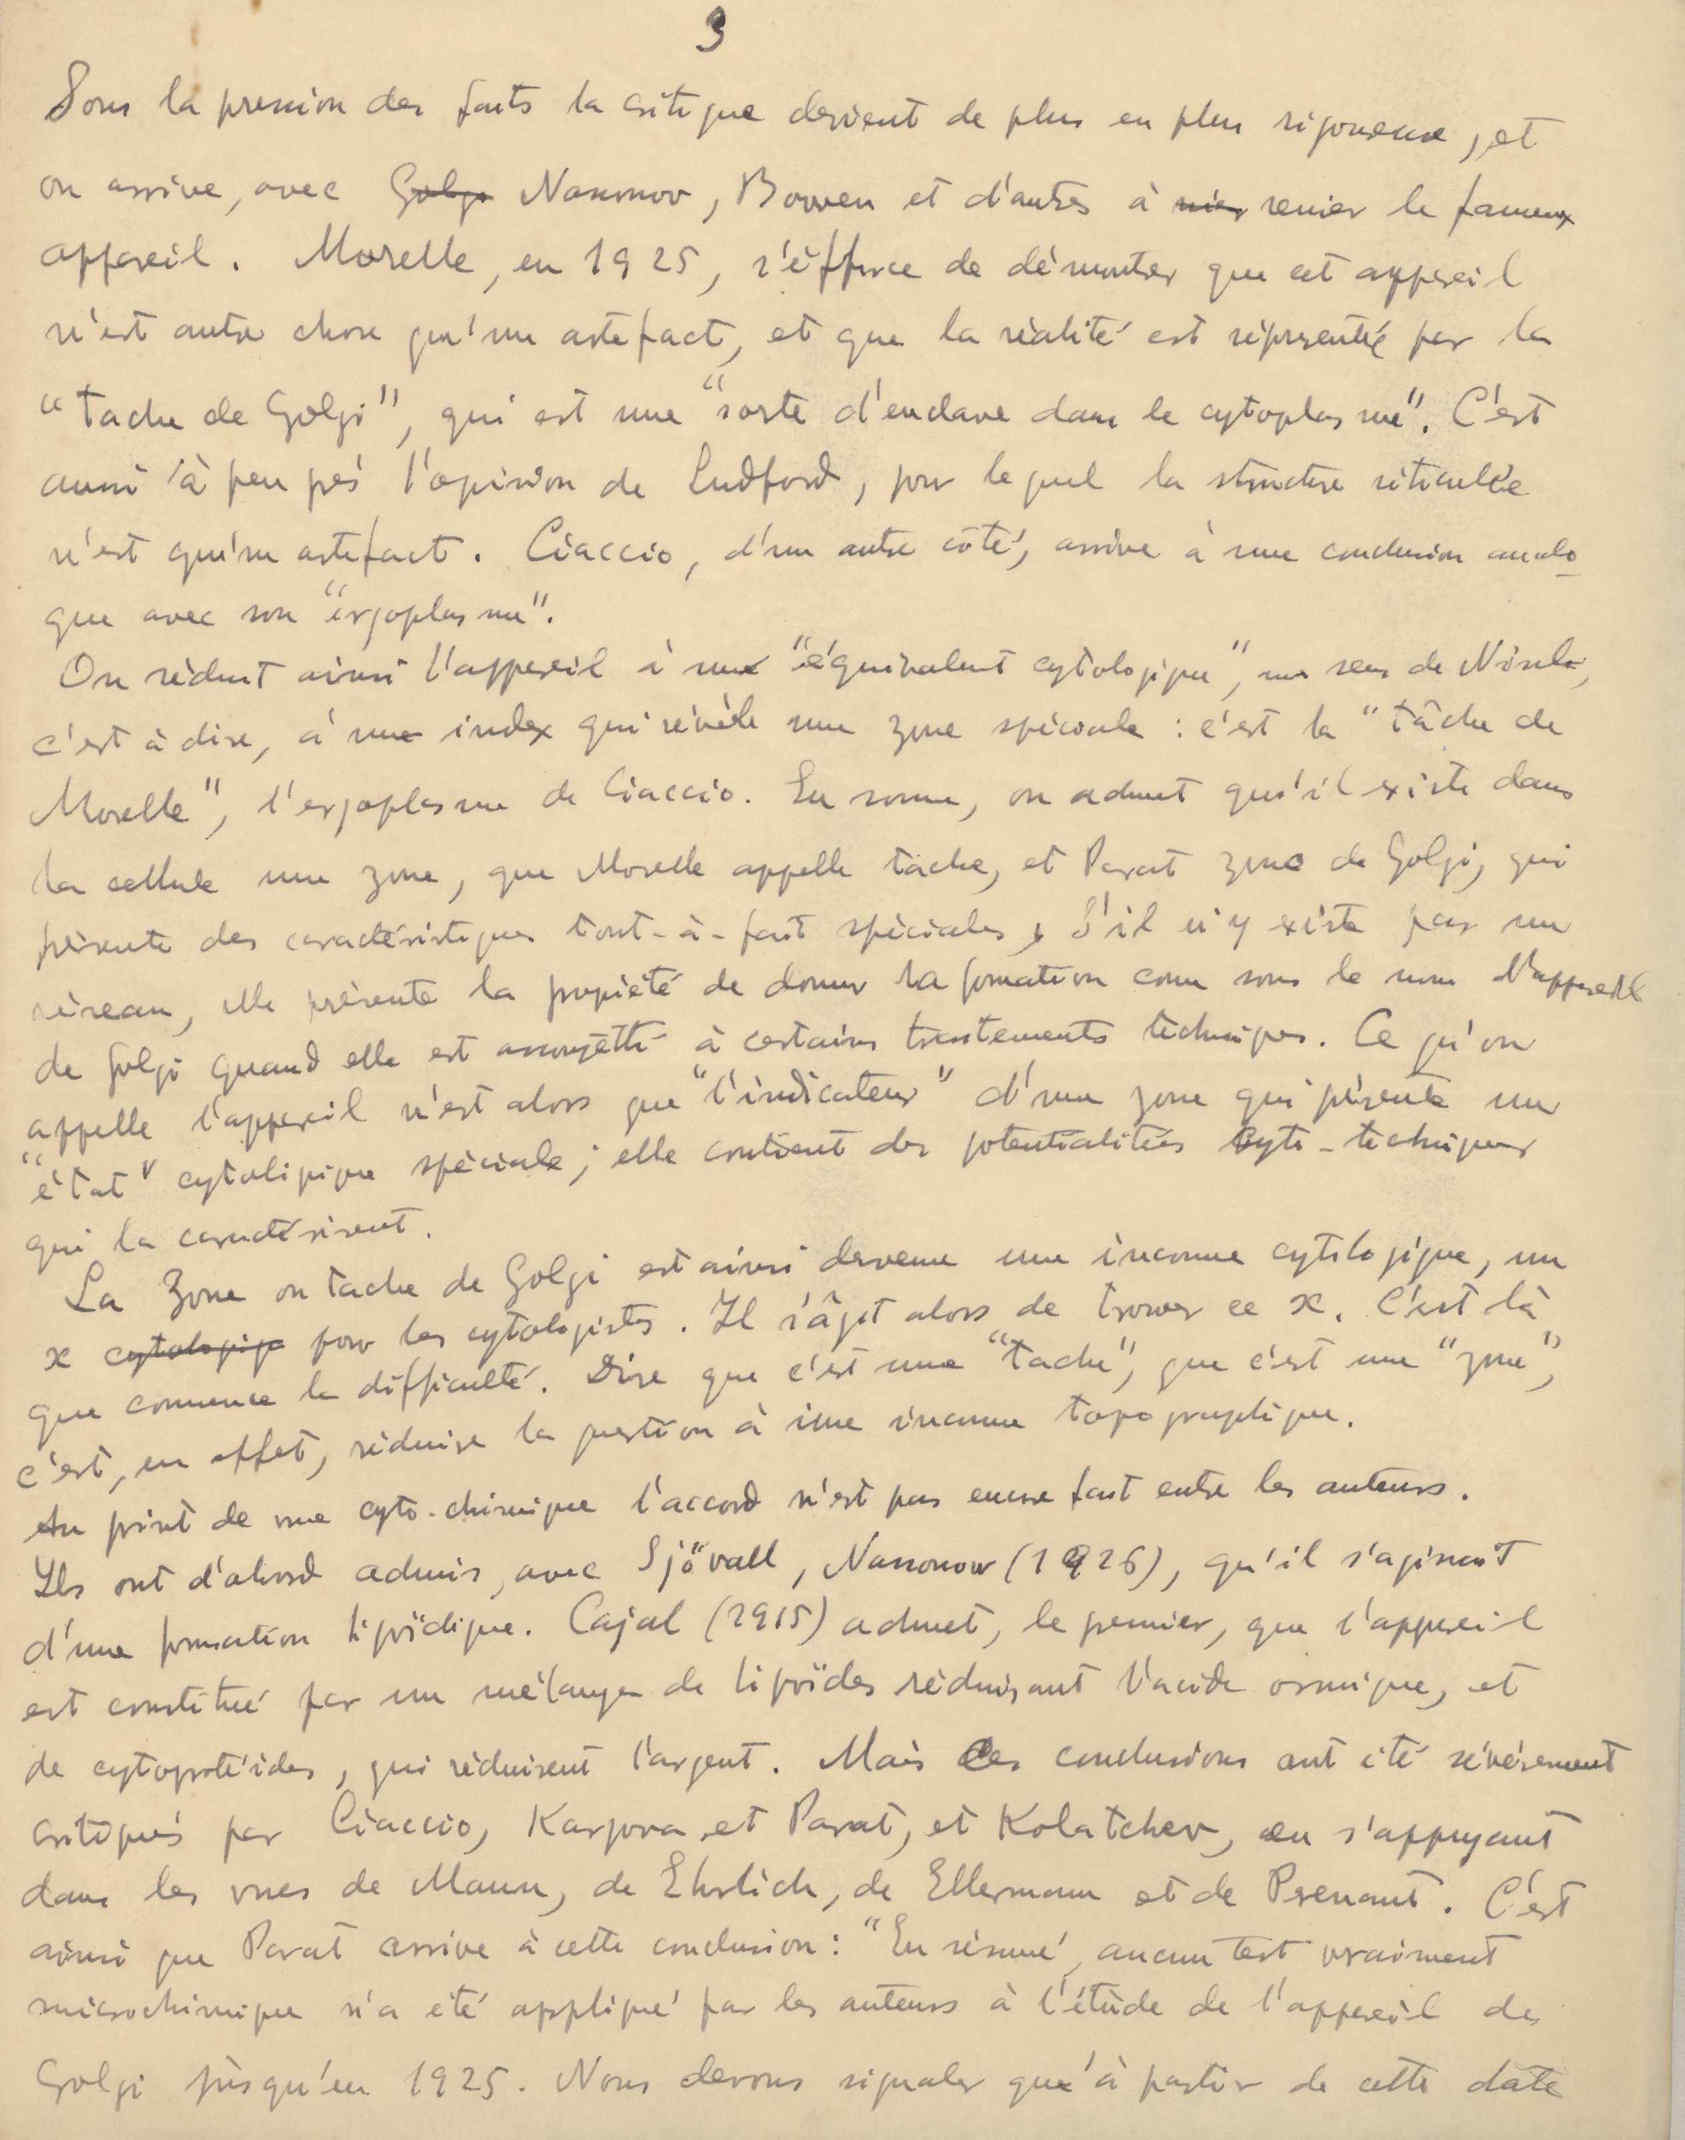 3
Sous la pression des faits la critique devient de plus en plus rigoureuse, et
on arrive, avec Golgi Nasonov, Bowen et d'autres à nier renier le fameux
appareil. Morelle, en 1925, s'éfforce de démontrer que cet appareil
n'est autre chose qu'un artefact, et que la réalité est répresentée par la
"tache de Golgi", qui est une "sorte d'enclave dans le cytoplasme". C'est
aussi à peu près l'opinion de Ludford, pour lequel la structure réticulée
n'est qu'un artefact. Ciaccio, d'un autre côté, arrive à une conclusion analo-
gue avec son "ergoplasme".
On réduit ainsi l'appareil à un "équivalent cytologique", au sens de Nissl,
c'est à dire, à un index qui révèle une zone spéciale : c'est la "tâche de
Morelle", l'ergoplasme de Ciaccio. En somme, on admet qu'il existe dans
la cellule une zone, que Morelle appelle tache, et Parat zone de Golgi, qui
présente des caractéristiques tout-à-fait spéciales, S'il n'y existe pas un
réseau, elle présente la propiété de donner la formation connu sous le nom d'appareil
de Golgi quand elle est assoujétti à certains traitements techniques. Ce qu'on
appelle l'appareil n'est alors que "l'indicateur" d'une zone qui présente un
"état" cytologique spéciale; elle contient des potentialités cyto-techniques
qui la caractérisent.
La Zone ou tache de Golgi est ainsi devenue une inconnue cytologique, un
x cytologique pour les cytologistes. Il s'âgit alors de trouver ce x. C'est là
que commence la difficulté. Dire que c'est une "tache", que c'est une "zone",
c'est, en effet, réduire la question à une inconnue topographique.
Au point de vue cyto-chimique l'accord n'est pas encore fait entre les auteurs.
Ils ont d'abord admis, avec Sjövall, Nassonow (1926), qu'il s'agissait
d'une formation lipoïdique. Cajal (1915) admet, le premier, que l'appareil
est constitué par un mélange de lipoïdes réduisant l'acide osmique, et
de cytoprotéides, qui réduisent l'argent. Mais ces conclusions ont été sévérement
critiqués par Ciaccio, Karpova et Parat, et Kolatchev, en s'appuyant
dans les vues de Mann, de Ehrlich, de Ellermann et de Prenant. C'est
ainsi que Parat arrive à cette conclusion: "En résumé, aucun test vraiment
microchimique n'a été appliqué par les auteurs à l'étude de l'appareil de
Golgi jusqu'en 1925. Nous devons signaler qu'à partir de cette date